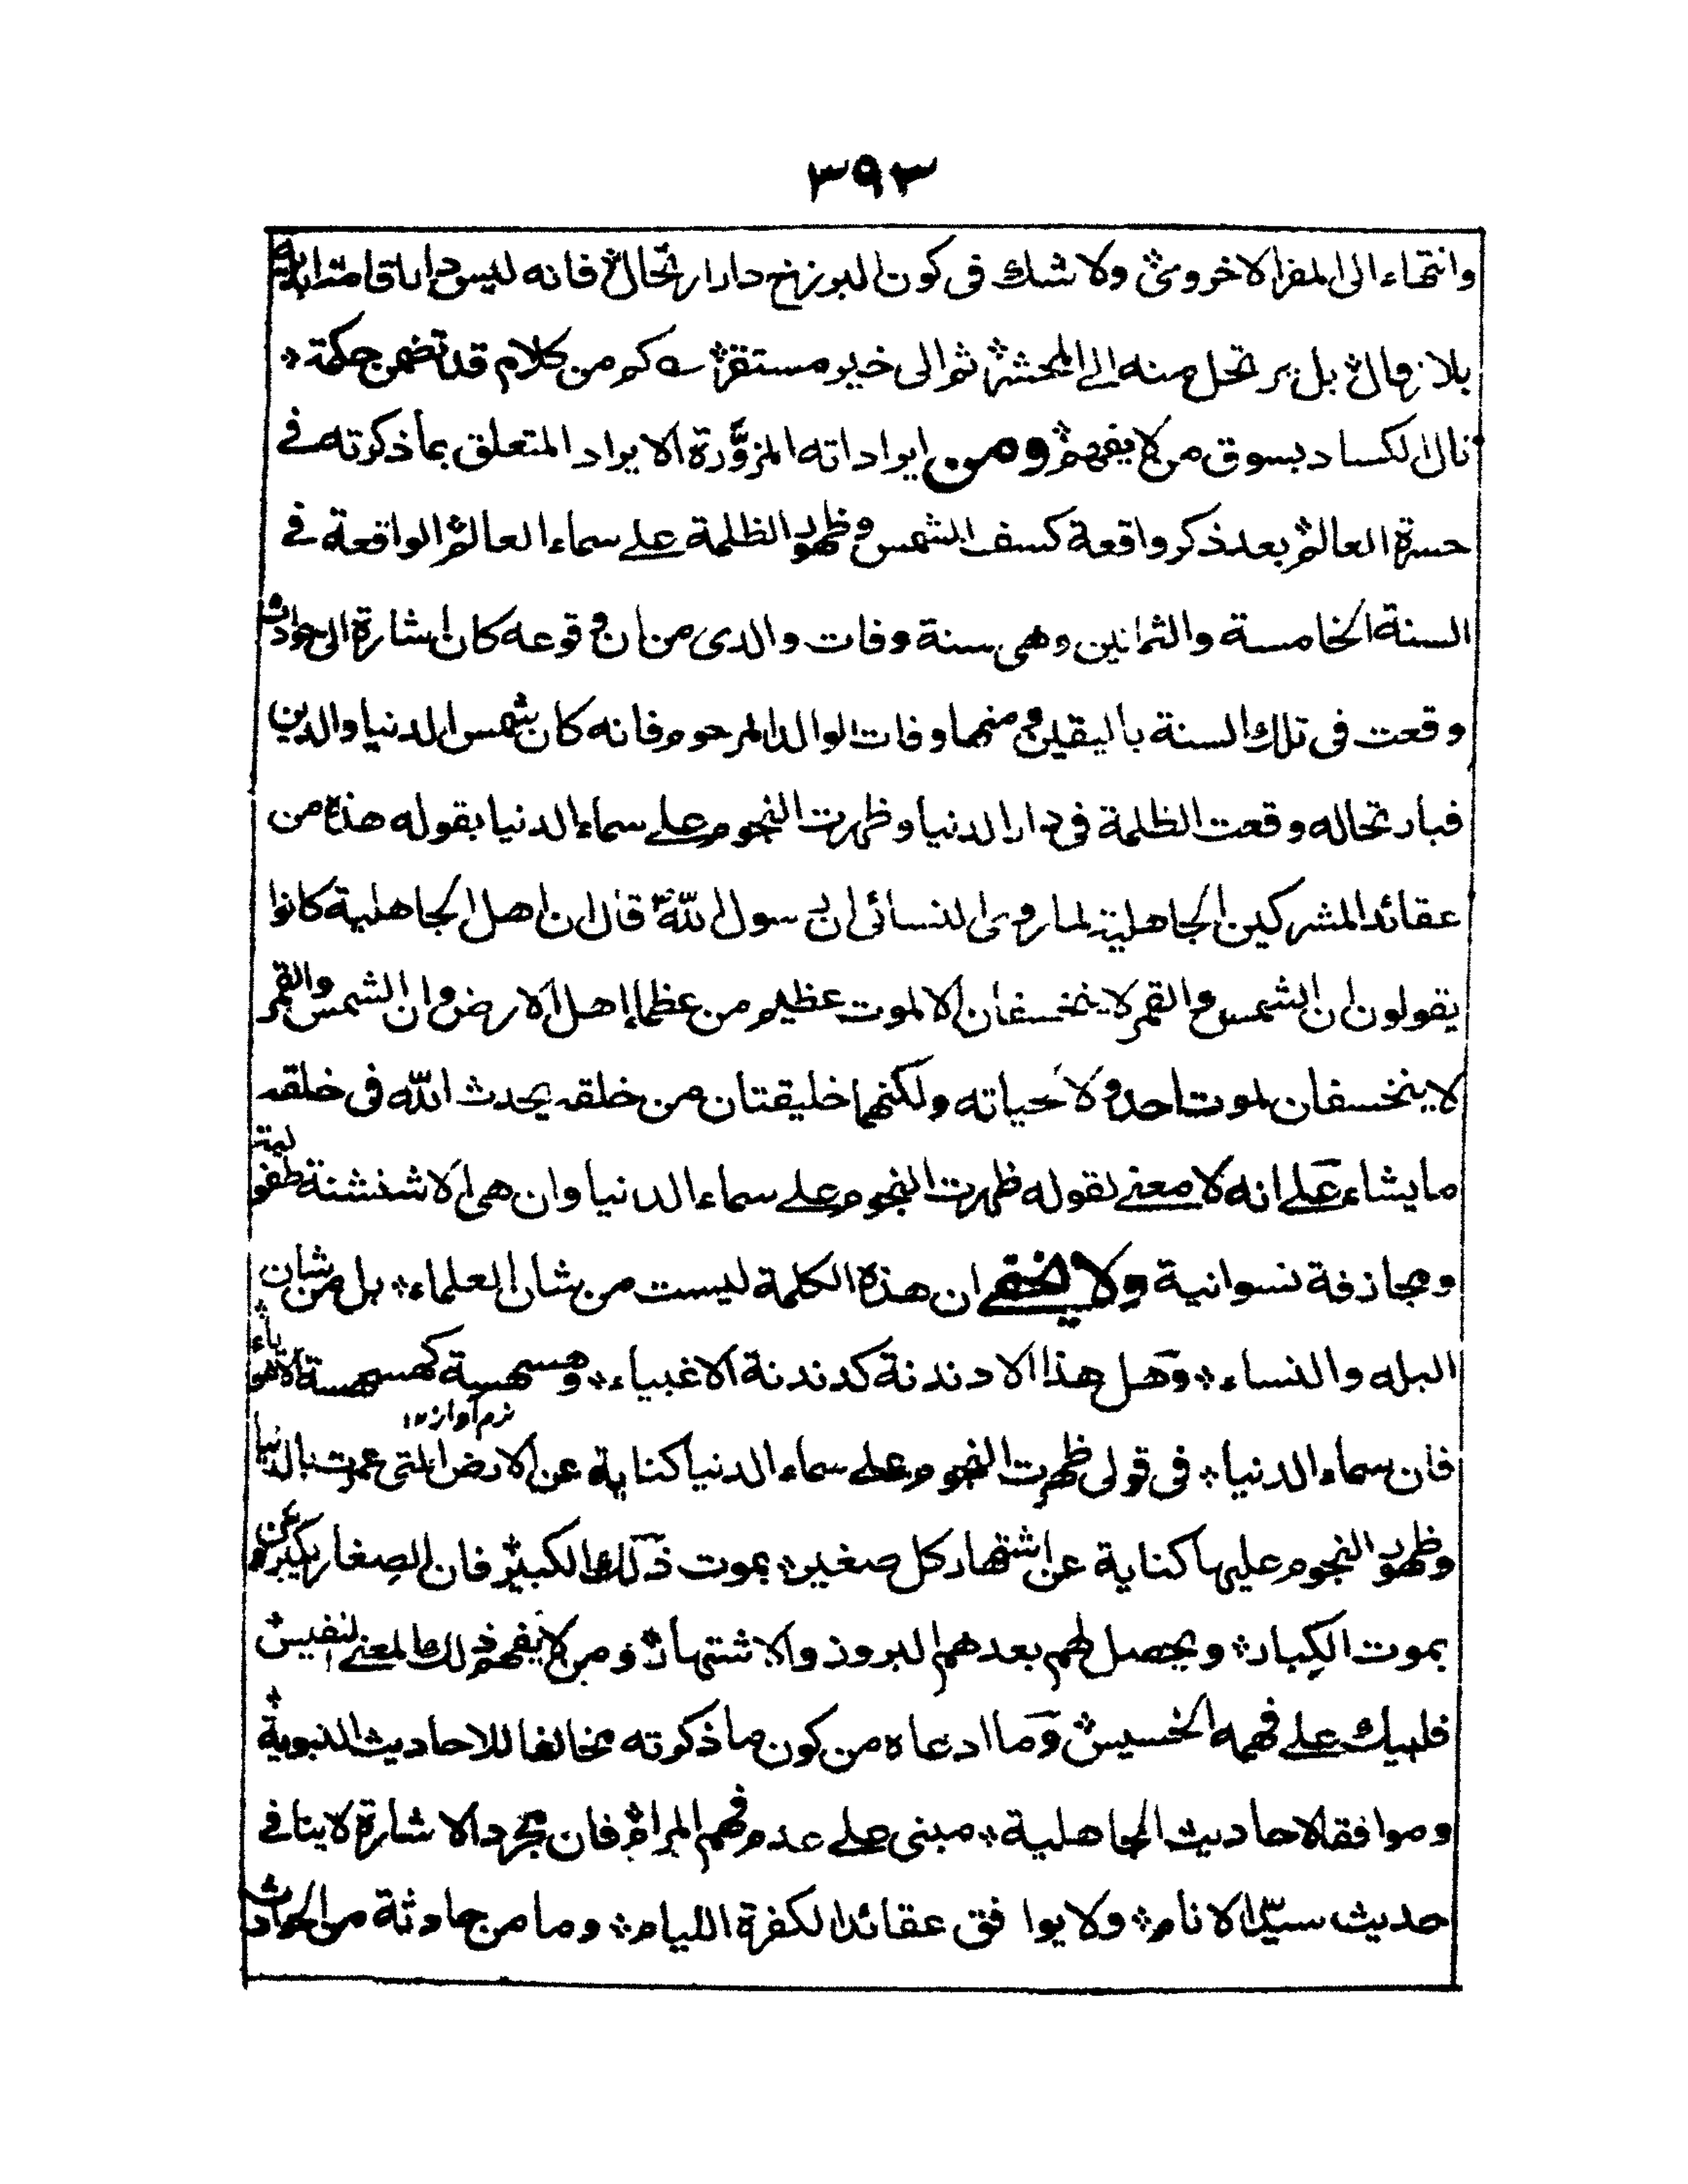 ٣٩٣
وانتهاء الى المفر الاخروى؞ ولا شك فى كون البرزخ دار ارتحال؞ فانه ليس دار اقامة ابدية
بلا زوال؞ بل يرتحل منه الى المحشر؞ ثم الى خير مستقر؞ ؎ كم من كلام قد تضمن حكمة؞
نال الكساد بسوق من لا يفهم؞ ومن ايراداته المزوَّرة الايراد المتعلق بما ذكرته فى
حسرة العالم؞ بعد ذكر واقعة كسف الشمس وظهور الظلمة على سماء العالم؞ الواقعة فى
السنة الخامسة والثمانين وهى سنة وفات والدى من ان وقوعه كان اشارة الى حوادث
وقعت فى تلك السنة باليقين ومنها وفات الوالد المرحوم فانه كان شمس الدنيا والدين
فبارتحاله وقعت الظلمة فى دار الدنيا وظهرت النجوم على سماء الدنيا بقوله هذه من
عقائد المشركين الجاهلية لما روى النسائى ان رسول اللّه ؐ قال ان اهل الجاهلية كانوا
يقولون ان الشمس والقمر لا ينخسفان الا لموت عظيم من عظماء اهل الارض وان الشمس والقمر
لا ينخسفان لموت احد ولا حياته ولكنهما خليقتان من خلقه يحدث اللّه فى خلقه
ما يشاء على انه لا معنى لقوله ظهرت النجوم على سماء الدنيا وان هى الا شنشنة طفولية
ومجازفة نسوانية ولا يخفى ان هذه الكلمة ليست من شان العلماء؞ بل من شان
البله والنساء؞ وهل هذا الا دندنة كدندنة الاغبياء؞ وهسهسة كهسهسة الاقوياء؞
نرم آواز ١٢
فان سماء الدنيا؞ فى قولى ظهرت النجوم على سماء الدنيا كناية عن الارض التى عمرت بالدنيا
وظهور النجوم عليها كناية عن اشتهار كل صغير؞ بموت ذلك الكبير؞ فان الصغار يكبرون
بموت الكبار؞ ويحصل لهم بعدهم البروز والاشتهار؞ ومن لا يفهم ذلك المعنى النفيس؞
فليبك على فهمه الخسيس؞ وما ادعاه من كون ما ذكرته مخالفا للاحاديث النبوية؞
وموافقا لاحاديث الجاهلية؞ مبنى على عدم فهم المرام؞ فان مجرد الاشارة لا ينافى
حديث سيّد الانام؞ ولا يوافق عقائد الكفرة اللیام؞ وما من حادثة من الحوادث